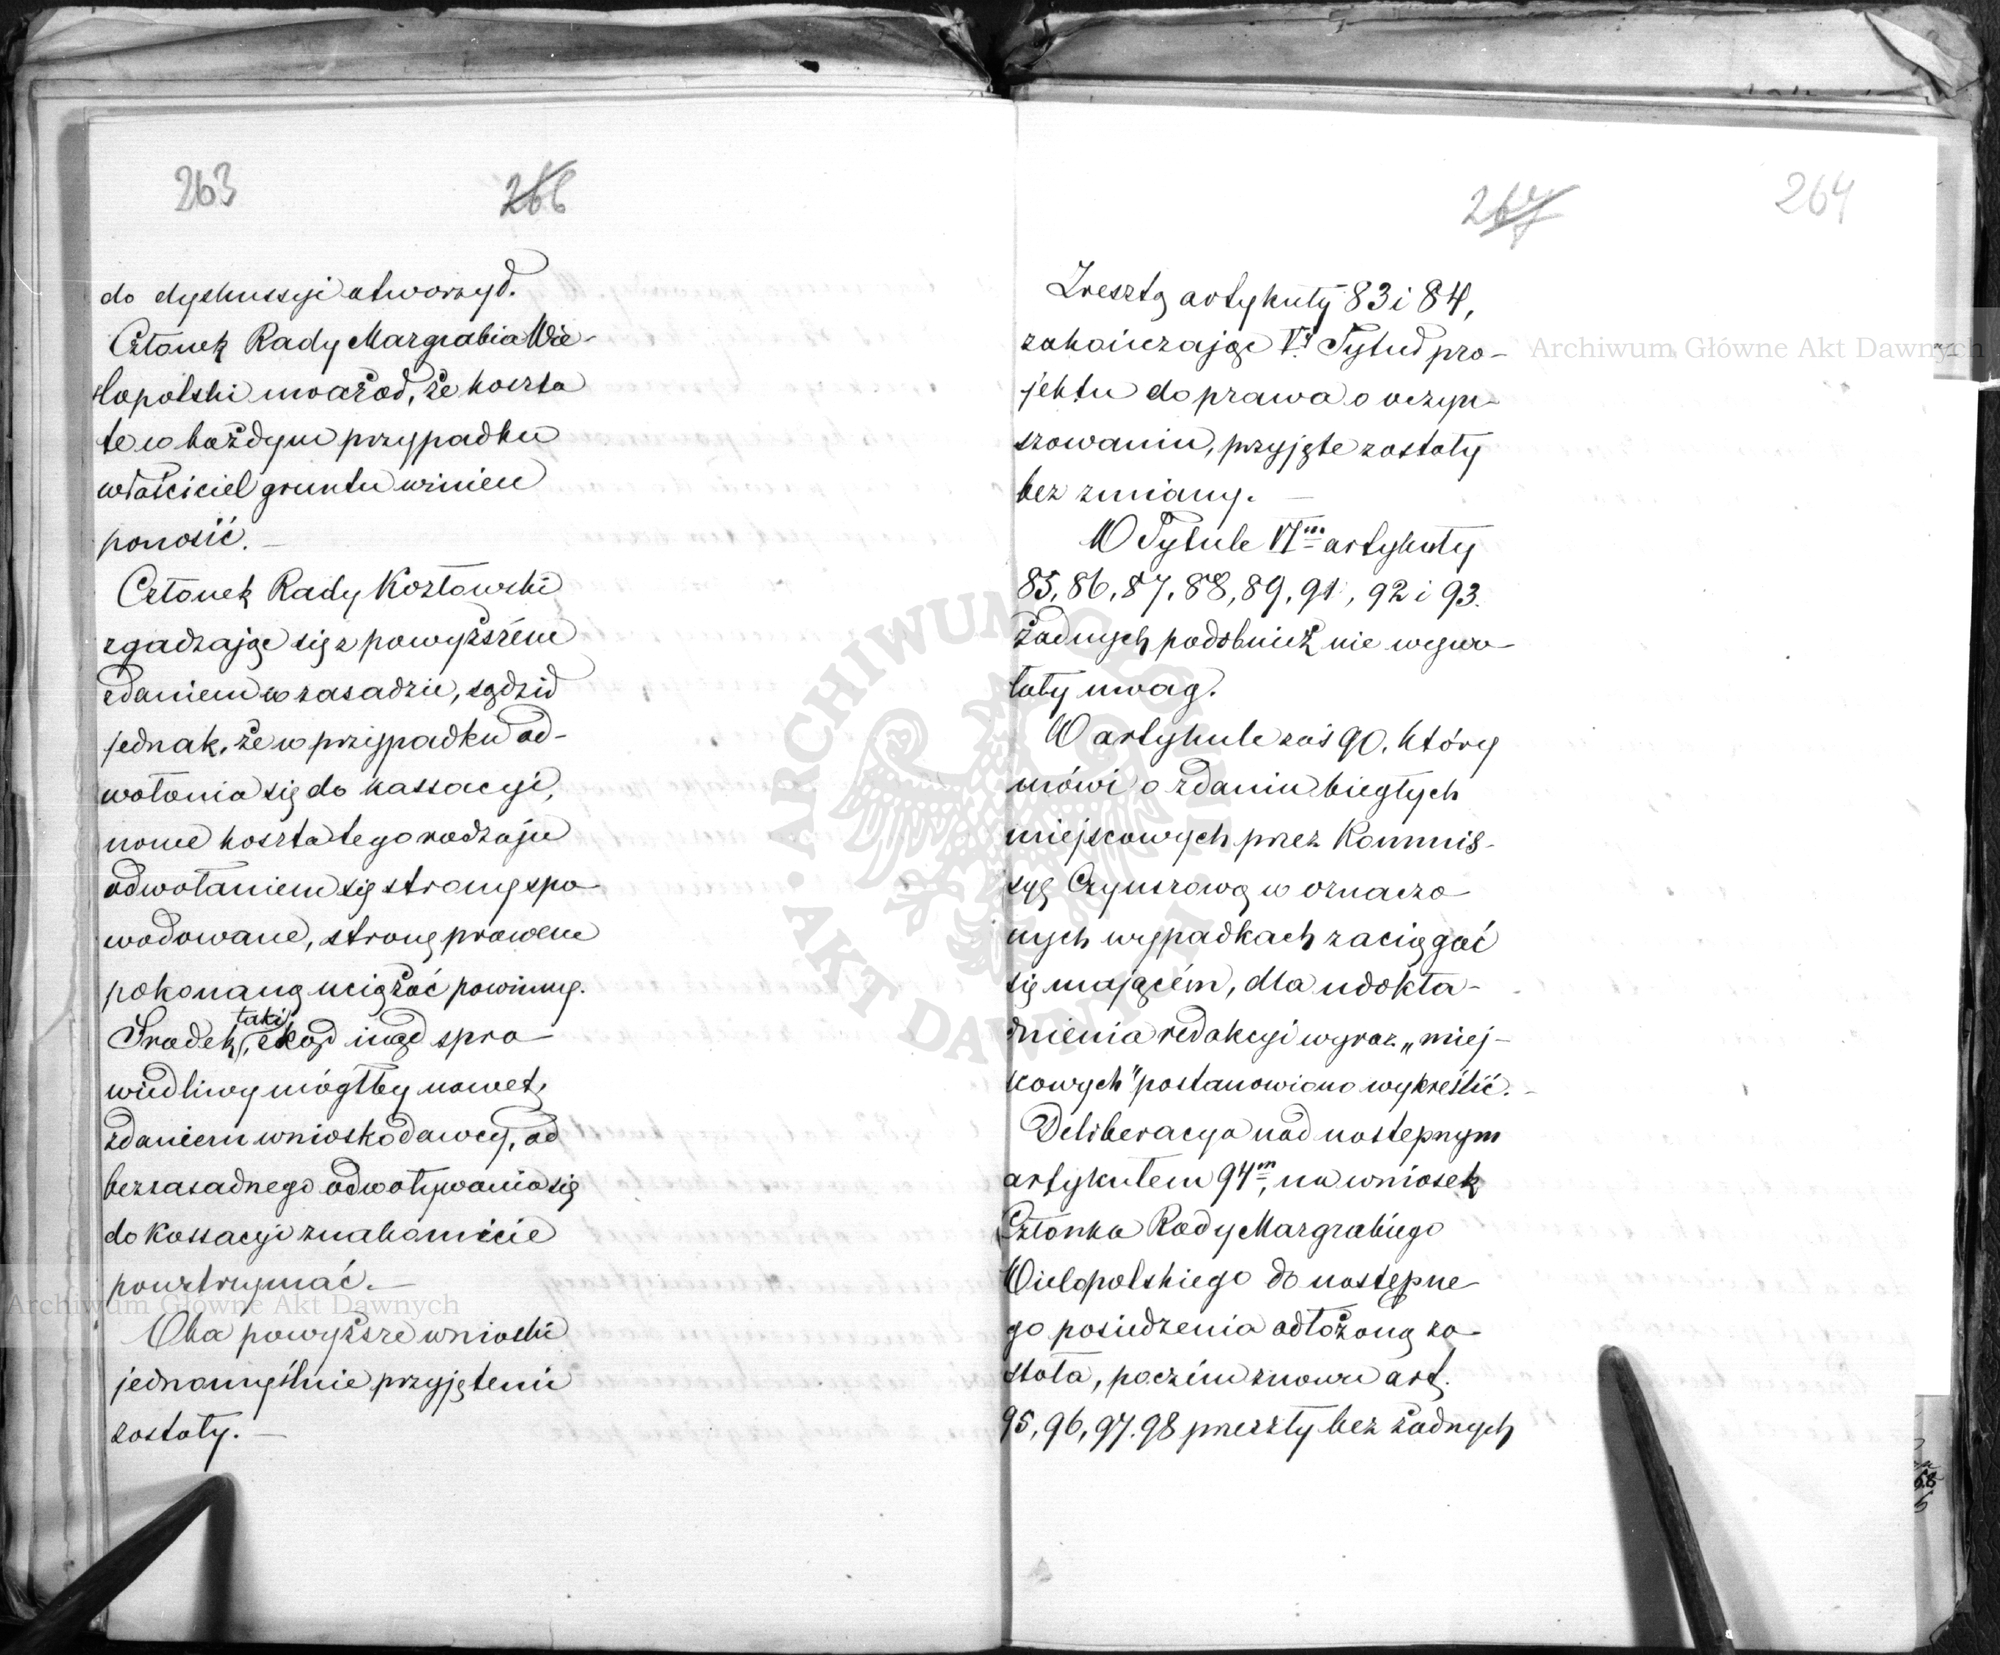 263
266
do dyskussyi otworzył.
Członek Rady Margrabia Wie-
lopolski uważał, że koszta
te w każdym przypadku
właściciel gruntu winien
ponosić. —
Członek Rady Kozłowski
zgadzając się z powyższém
zdaniem w zasadzie, sądził
jednak, że w przypadku od-
wołania się do kassacyi,
nowe koszta tego rodzaju
odwołaniem się strony spo-
wodowane, stronę prawem
pokonaną uciążać powinny.
Środek taki, skąd inąd spra-
wiedliwy mógłby nawet,
zdaniem wnioskodawcy, od
bezzasadnego odwoływania się
do Kassacyi znakomicie
powstrzymać. —
Oba powyższe wnioski
jednomyślnie przyjętemi
zostały. —
267
264
Zresztą artykuły 83 i 84,
zakończające V.ʸ Tytuł pro-
jektu do prawa o oczyn-
szowaniu, przyjęte zostały
bez zmiany. —
W Tytule VIᵐ artykuły
85, 86, 87, 88, 89, 91, 92 i 93.
żadnych podobnież nie wywo-
łały uwag.
W artykule zaś 90, który
mówi o zdaniu biegłych
miejscowych przez Kommis-
syę Czynszową w oznaczo
nych wypadkach zaciągać
się mającém, dla udokła-
dnienia redakcyi wyraz „miej-
scowych" postanowiono wykreślić. -
Deliberacya nad następnym
artykułem 94ᵐ, na wniosek
Członka Rady Margrabiego
Wielopolskiego do następne-
go posiedzenia odłożoną zo-
stała, poczém znowu art.
95, 96, 97. 98 przeszły bez żadnych
Archiwum Główne Akt Dawnych
Archiwum Główne Akt Dawnych
ARCHIWUM GŁÓWNE · AKT DAWNYCH ·